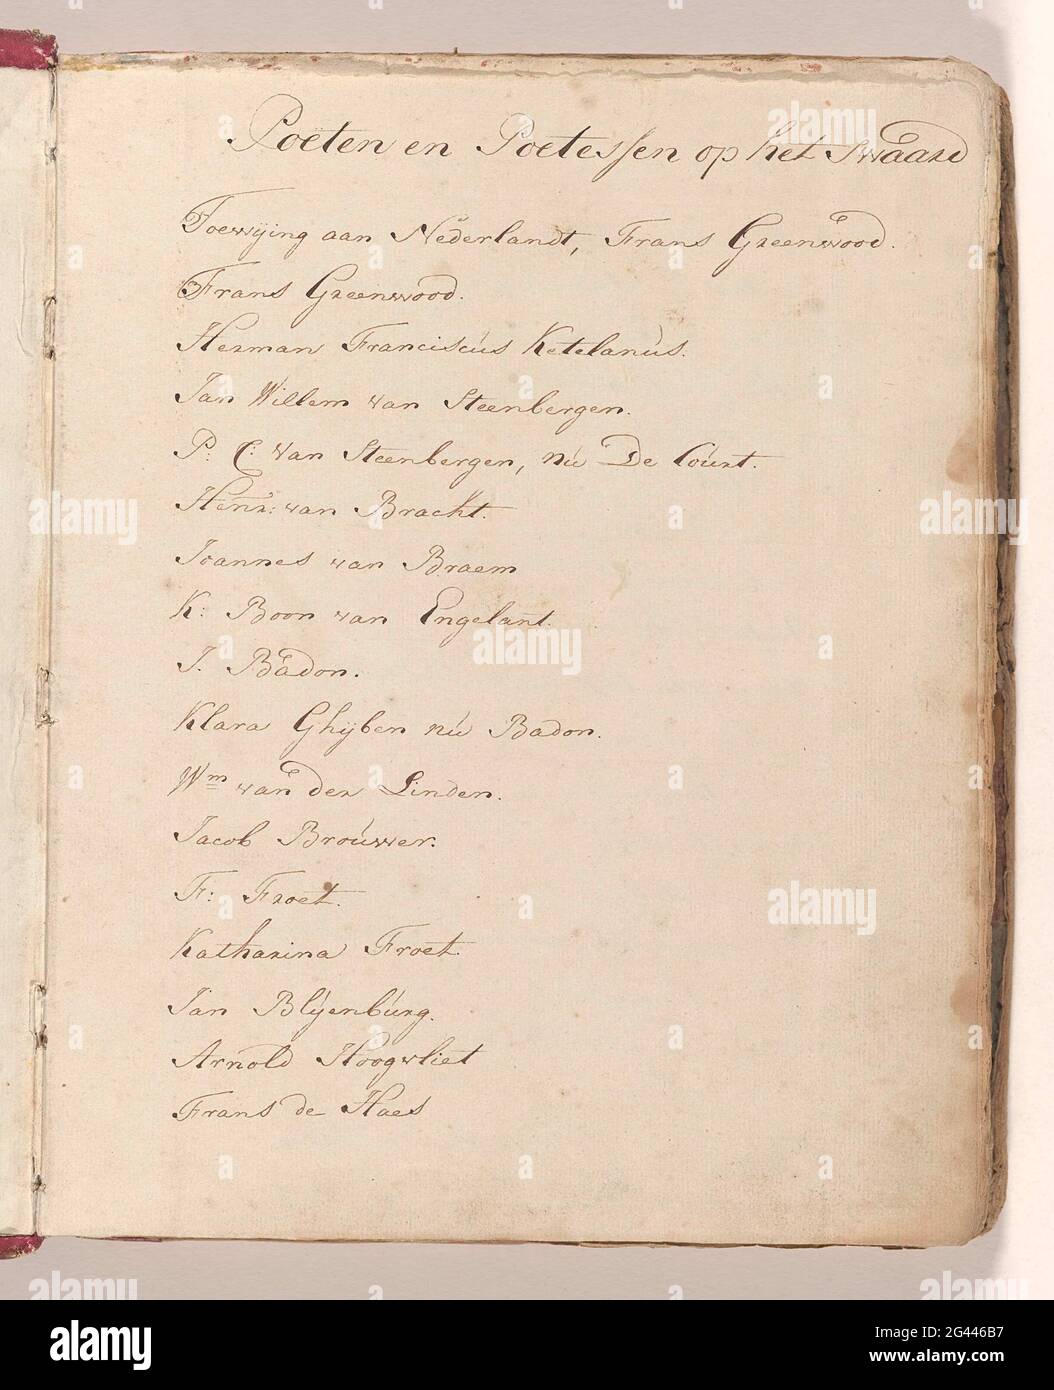 Poëten en Poetessen op het Swaard
Toewijing aan Nederlandt, Frans Greenwood.
Frans Greenwood.
Herman Franciscús Ketelanús.
Jan Willem van Steenbergen.
P: C: van Steenbergen, nú De Coúrt.
Henr: van Bracht.
Joannes van Braem
K: Boon van Engelant.
J. Badon.
Klara Ghijben nú Badon.
Wm van der Linden.
Jacob Broúwer.
F: Froet.
Katharina Froet.
Jan Blijenbúrg.
Arnold Hoogvliet
Frans de Haes
alamy
Image ID: 2G446B7
www.alamy.com